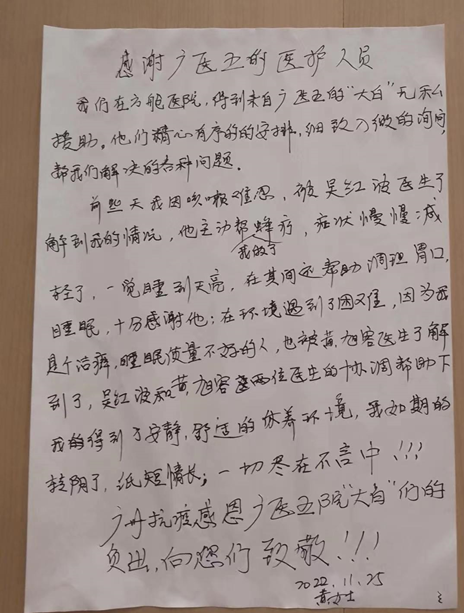 感谢广医五的医护人员
我们在方舱医院,得到来自广医五的"大白"无私的
援助。他们精心有序的的安排,细致入微的询问,
帮我们解决的各种问题。
前些天我因咳嗽难忍,被吴红波医生了
解到我的情况,他主动帮蜂疗,症状慢慢减
我做了
轻了,一觉睡到天亮,在其间还帮助调理胃口,
睡眠,十分感谢他;在环境遇到了困难,因为我
是个洁癖,睡眠质量不好的人,也被黄旭容医生了解
到了,吴红波和黄旭容两位医生的协调帮助下
我的得到了安静,舒适的休养环境,我如期的
转阴了,纸短情长;一切尽在不言中!!!
抗疫感恩广医五院"大白"们的
负出,向您们致敬!!!
2022.11.25